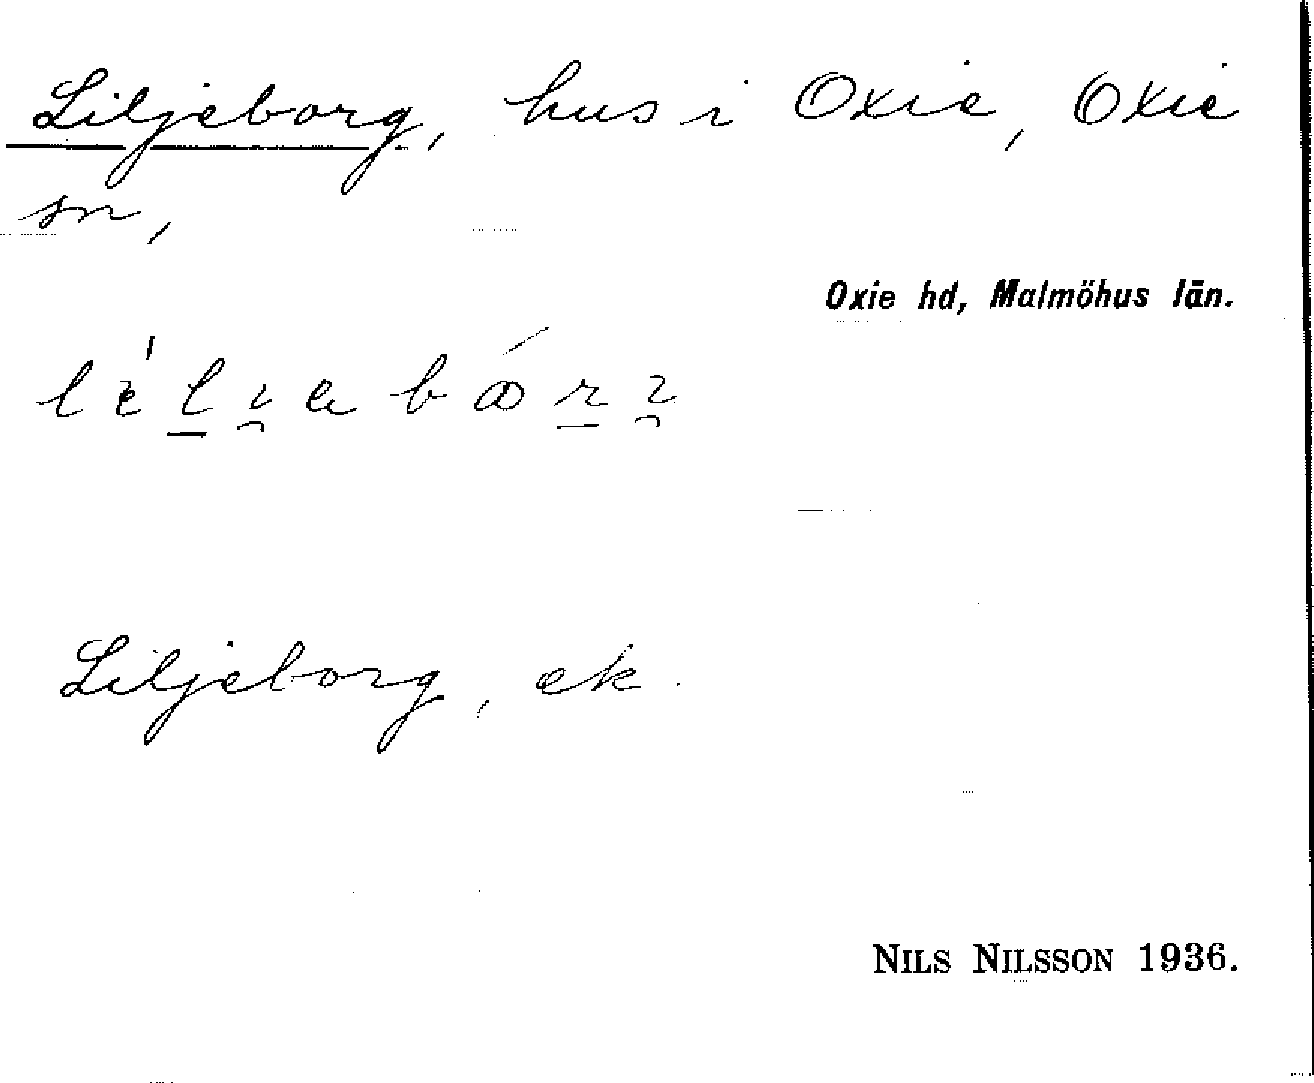 Liljeborg, hus i Oxie, Oxie
sn,
Oxie hd, Malmöhus län.
Liljeborg, ek.
NILS NILSSON 1936.